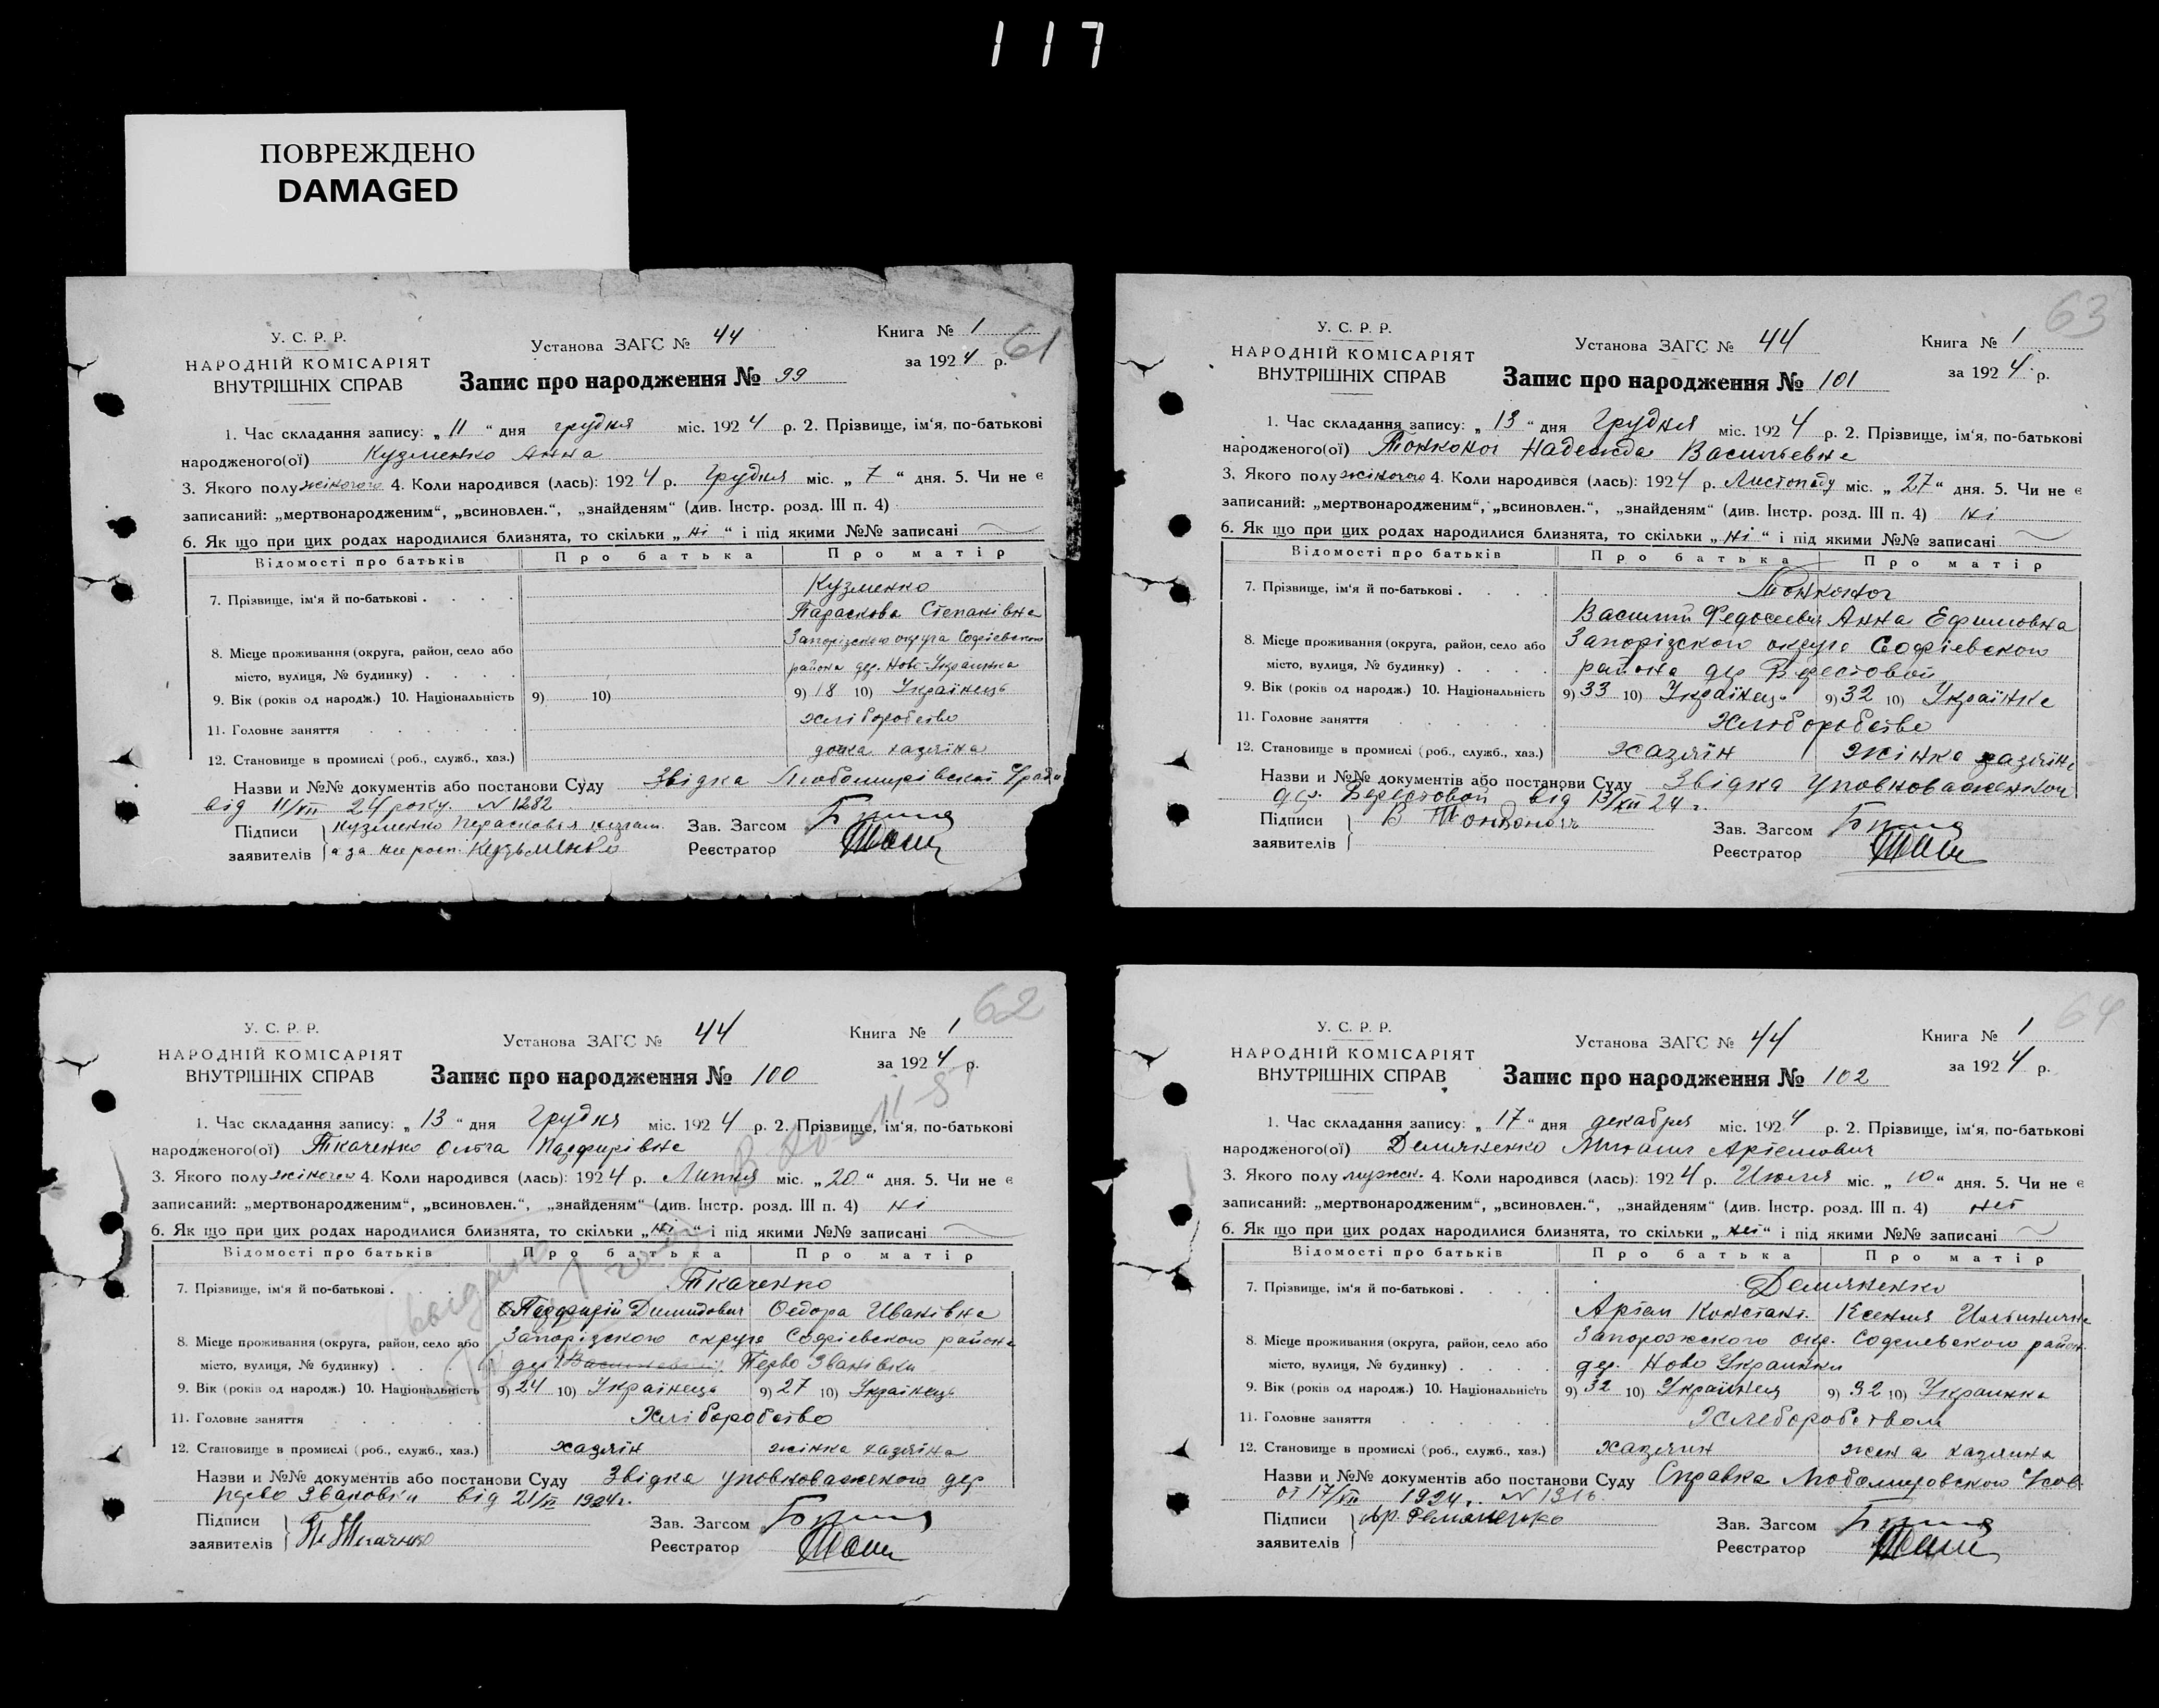 117
ПОВРЕЖДЕНО
DAMAGED
61
У. С. Р. Р.
НАРОДНІЙ КОМІСАРІЯТ
ВНУТРІШНІХ СПРАВ
Установа ЗАГС № 44
Книга № 1
за 1924 р.
Запис про народження № 99
1. Час складання запису: „ 11 “ дня грудня міс. 1924 р. 2. Прізвище, ім‘я, по-батькові
народженого(ої) Кузменко Анна
3. Якого полу жіночого 4. Коли народився (лась): 1924 р. Грудня міс. „ 7 “ дня. 5. Чи не є
записаний: „мертвонародженим“, „всиновлен.“, „знайденям“ (див. Інстр. розд. III п. 4)
6. Як що при цих родах народилися близнята, то скільки „ ні “ і під якими №№ записані
Відомості про батьків Про батька Про матір
7. Прізвище, ім‘я й по-батькові . Кузменко
Параскова Степанівна
Запорізского округа Софіевского
8. Місце проживання (округа, район, село або
місто, вулиця, № будинку) района дер. Ново-Украинка
9. Вік (років од народж.) 10. Національність 9) 10) 9) 18 10) Українець
11. Головне заняття хліборобство
12. Становище в промислі (роб., служб., хаз.) дочка хазяіна
Назви и №№ документів або постанови Суду Звідка Любомирівскої С/ради
від 11/XII 24 року. N 1282
Підписи заявителів Кузменко Парасковья
а за Кузьменко
Зав. Загсом
Реєстратор
63
У. С. Р. Р.
НАРОДНІЙ КОМІСАРІЯТ
ВНУТРІШНІХ СПРАВ
Установа ЗАГС № 44
Книга № 1
за 1924 р.
Запис про народження № 101
1. Час складання запису: „ 13 “ дня Грудня міс. 1924 р. 2. Прізвище, ім‘я, по-батькові
народженого(ої) Тонконог Надежда Васильевна
3. Якого полу жіночого 4. Коли народився (лась): 1924 р. Листопаду міс. „ 27 “ дня. 5. Чи не є
записаний: „мертвонародженим“, „всиновлен.“, „знайденям“ (див. Інстр. розд. III п. 4) ні
6. Як що при цих родах народилися близнята, то скільки „ ні “ і під якими №№ записані
Відомості про батьків Про батька Про матір
7. Прізвище, ім‘я й по-батькові . Тонконог
Василий Федосеевич Анна Ефимовна
8. Місце проживання (округа, район, село або Запорізского округа Софіевского
місто, вулиця, № будинку) района дер Берестовой
9. Вік (років од народж.) 10. Національність 9) 33 10) Українець 9) 32 10) Українка
11. Головне заняття Хліборобство
12. Становище в промислі (роб., служб., хаз.) хазяїн жінка хазяїна
Назви и №№ документів або постанови Суду Звідка уповноваженного
дер. Берестовой від 13/XII 24 г.
Підписи заявителів В Тонконогъ
Зав. Загсом
Реєстратор
62
У. С. Р. Р.
НАРОДНІЙ КОМІСАРІЯТ
ВНУТРІШНІХ СПРАВ
Установа ЗАГС № 44
Книга № 1
за 1924 р.
Запис про народження № 100
1. Час складання запису: „ 13 “ дня Грудня міс. 1924 р. 2. Прізвище, ім‘я, по-батькові
народженого(ої) Ткаченко Ольга Парфирівна
3. Якого полу жіночого 4. Коли народився (лась): 1924 р. Липня міс. „ 20 “ дня. 5. Чи не є
записаний: „мертвонародженим“, „всиновлен.“, „знайденям“ (див. Інстр. розд. III п. 4) ні
6. Як що при цих родах народилися близнята, то скільки „ ні “ і під якими №№ записані
Відомості про батьків Про батька Про матір
7. Прізвище, ім‘я й по-батькові . Ткаченко
Парфирій Димидович Федора Иванівна
8. Місце проживання (округа, район, село або Запорізского округа Софіевского района
місто, вулиця, № будинку) дер Перво Званівки
9. Вік (років од народж.) 10. Національність 9) 24 10) Українець 9) 27 10) Українець
11. Головне заняття Хліборобство
12. Становище в промислі (роб., служб., хаз.) хазяїн жінка хазяїна
Назви и №№ документів або постанови Суду Звідка уповноваженого дер
Перво Звановки від 21/ 1924 г.
Підписи заявителів П Ткаченко
Зав. Загсом
Реєстратор
64
У. С. Р. Р.
НАРОДНІЙ КОМІСАРІЯТ
ВНУТРІШНІХ СПРАВ
Установа ЗАГС № 44
Книга № 1
за 1924 р.
Запис про народження № 102
1. Час складання запису: „ 17 “ дня декабря міс. 1924 р. 2. Прізвище, ім‘я, по-батькові
народженого(ої) Демяненко Михаил Артемович
3. Якого полу мужск. 4. Коли народився (лась): 1924 р. Июля міс. „ 10 “ дня. 5. Чи не є
записаний: „мертвонародженим“, „всиновлен.“, „знайденям“ (див. Інстр. розд. III п. 4) нет
6. Як що при цих родах народилися близнята, то скільки „ нет “ і під якими №№ записані
Відомості про батьків Про батька Про матір
7. Прізвище, ім‘я й по-батькові . Демяненко
Артем Констант. Ксения Ильинична
8. Місце проживання (округа, район, село або Запорожского окр. Софиевского район.
місто, вулиця, № будинку) дер. Ново Украинки
9. Вік (років од народж.) 10. Національність 9) 32 10) Українец 9) 32 10) Украинка
11. Головне заняття Хлеборобством
12. Становище в промислі (роб., служб., хаз.) хазяин жена хазяина
Назви и №№ документів або постанови Суду Справка Любомировского С/сов.
от 17/XII 1924 г. N 1316
Підписи заявителів Ар. Демяненко
Зав. Загсом
Реєстратор